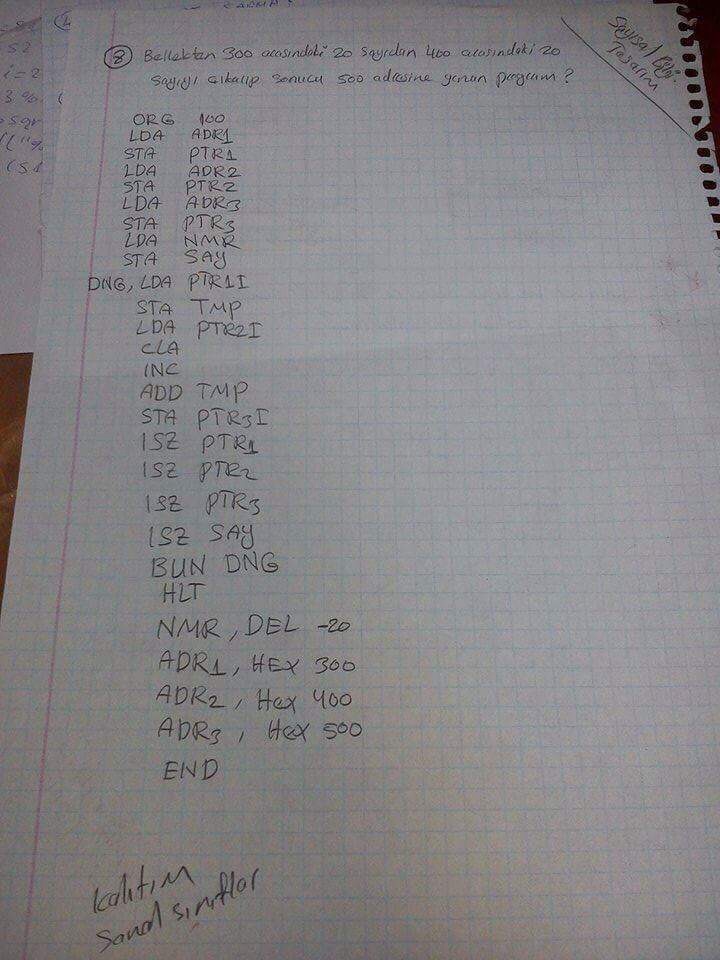 Sayısal Bilg.
Tasarım
8 Bellekten 300 arasındaki 20 sayıdan 400 arasındaki 20
sayıyı çıkalıp sonucu 500 adresine yazan program?
ORG 100
LDA ADR1
STA PTR1
LDA ADR2
STA PTR2
LDA ADR3
STA PTR3
LDA NMR
STA SAY
DNG, LDA PTR1I
STA TMP
LDA PTR2I
CLA
INC
ADD TMP
STA PTR3I
ISZ PTR1
ISZ PTR2
ISZ PTR3
ISZ SAY
BUN DNG
HLT
NMR, DEL -20
ADR1, HEX 300
ADR2, Hex 400
ADR3, Hex 500
END
kalıtım
Sanal sınıflar